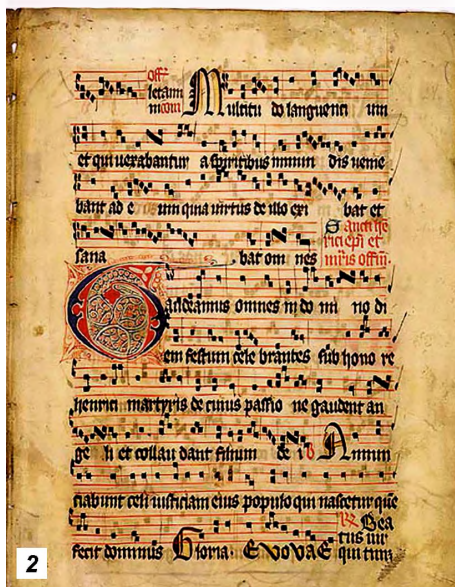 Off
letami
Multitu do languenti um
et qui uexabantur a spiritibus inmun dis uenie
bant ad e um quia uirtus de illo exi bat et
Sancti he
rici epi et
sana bat om nes
mris offm
Gaudeamus omnes in do mi no di
em festum cele brantes sub hono re
henrici martyris de cuius passio ne gaudent an
ge li et collau dant filium de i Annun
ciabunt celi iusticiam eius populo qui nascetur que
Bea
tus uir
fecit dominus Gloria. EVOVAE qui tim
2